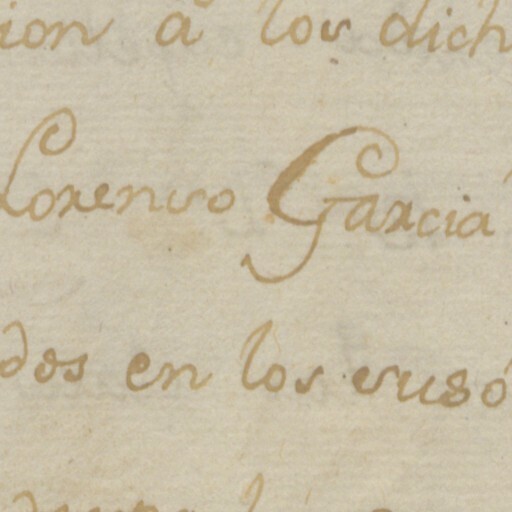 ion a los dich
Lorenso Garcia
dos en los